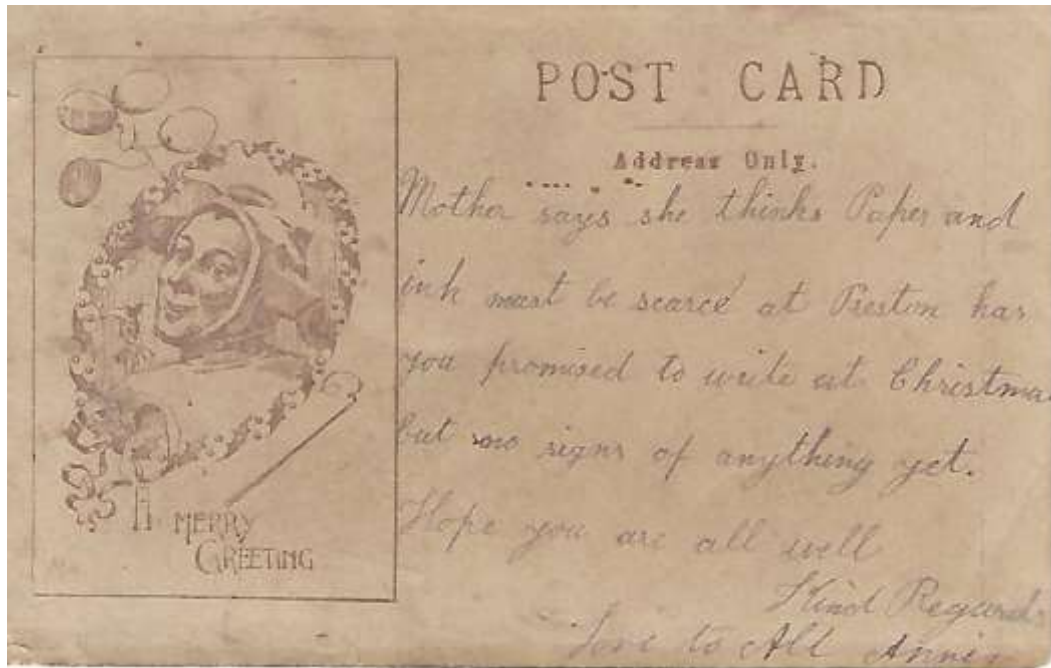 POST CARD
Address Only.
Mother says she thinks Paper and
ink must be scarce at Preston has
you promised to write at Christmas
but no signs of anything yet.
Hope you are all well
Kind Regards
Love to All Annie
A MERRY
GREETING